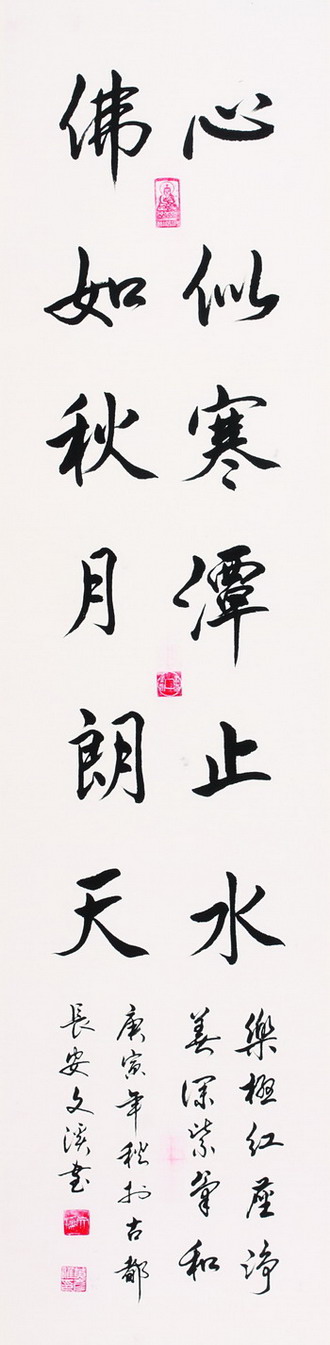 心似寒潭止水
佛如秋月朗天
樂極紅塵淨
美深紫氣和
庚寅年秋於古都
長安文溪書